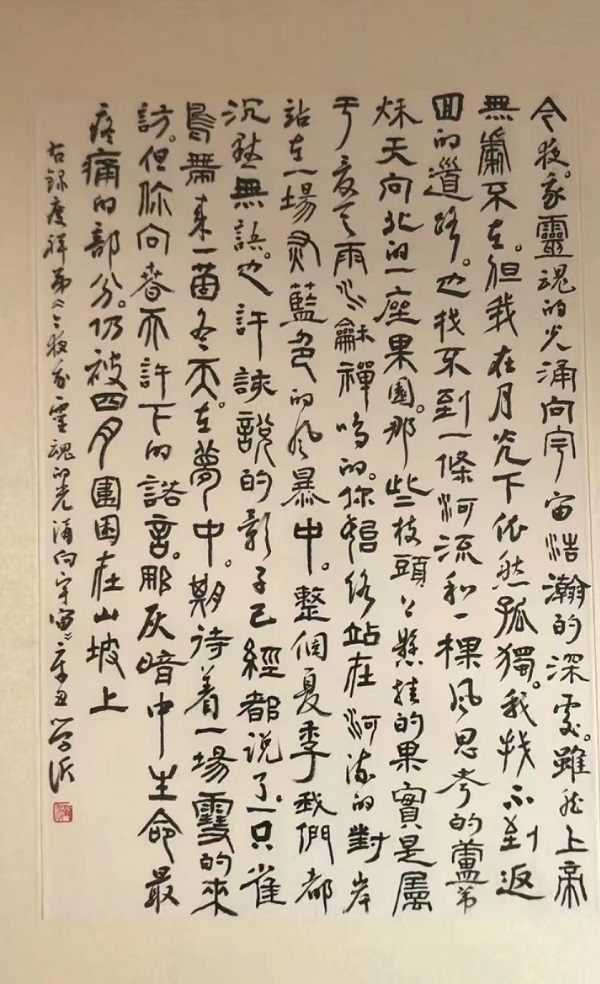 今夜。我靈魂的光涌向宇宙浩瀚的深處。雖然上帝
無處不在。但我在月光下依然孤獨。我找不到返
回的道路。也找不到一條河流和一棵風思考的蘆葦
秋天向北的一座果園。那些枝頭上懸挂的果實是屬
于夏天雨水龢蟬鳴的。你始終站在河流的對岸
站在一場藍色的风暴中。整個夏季我們都
沉默無語。也許該說的影子已經都說了。一只雀
鳥帶來一箇冬天。在夢中。期待着一場雪的來
訪。但你向春天許下的諾言。那灰暗中生命最
疼痛的部分。仍被四月圍困在山坡上
右錄慶祥弟《今夜我靈魂的光涌向宇宙》辛丑